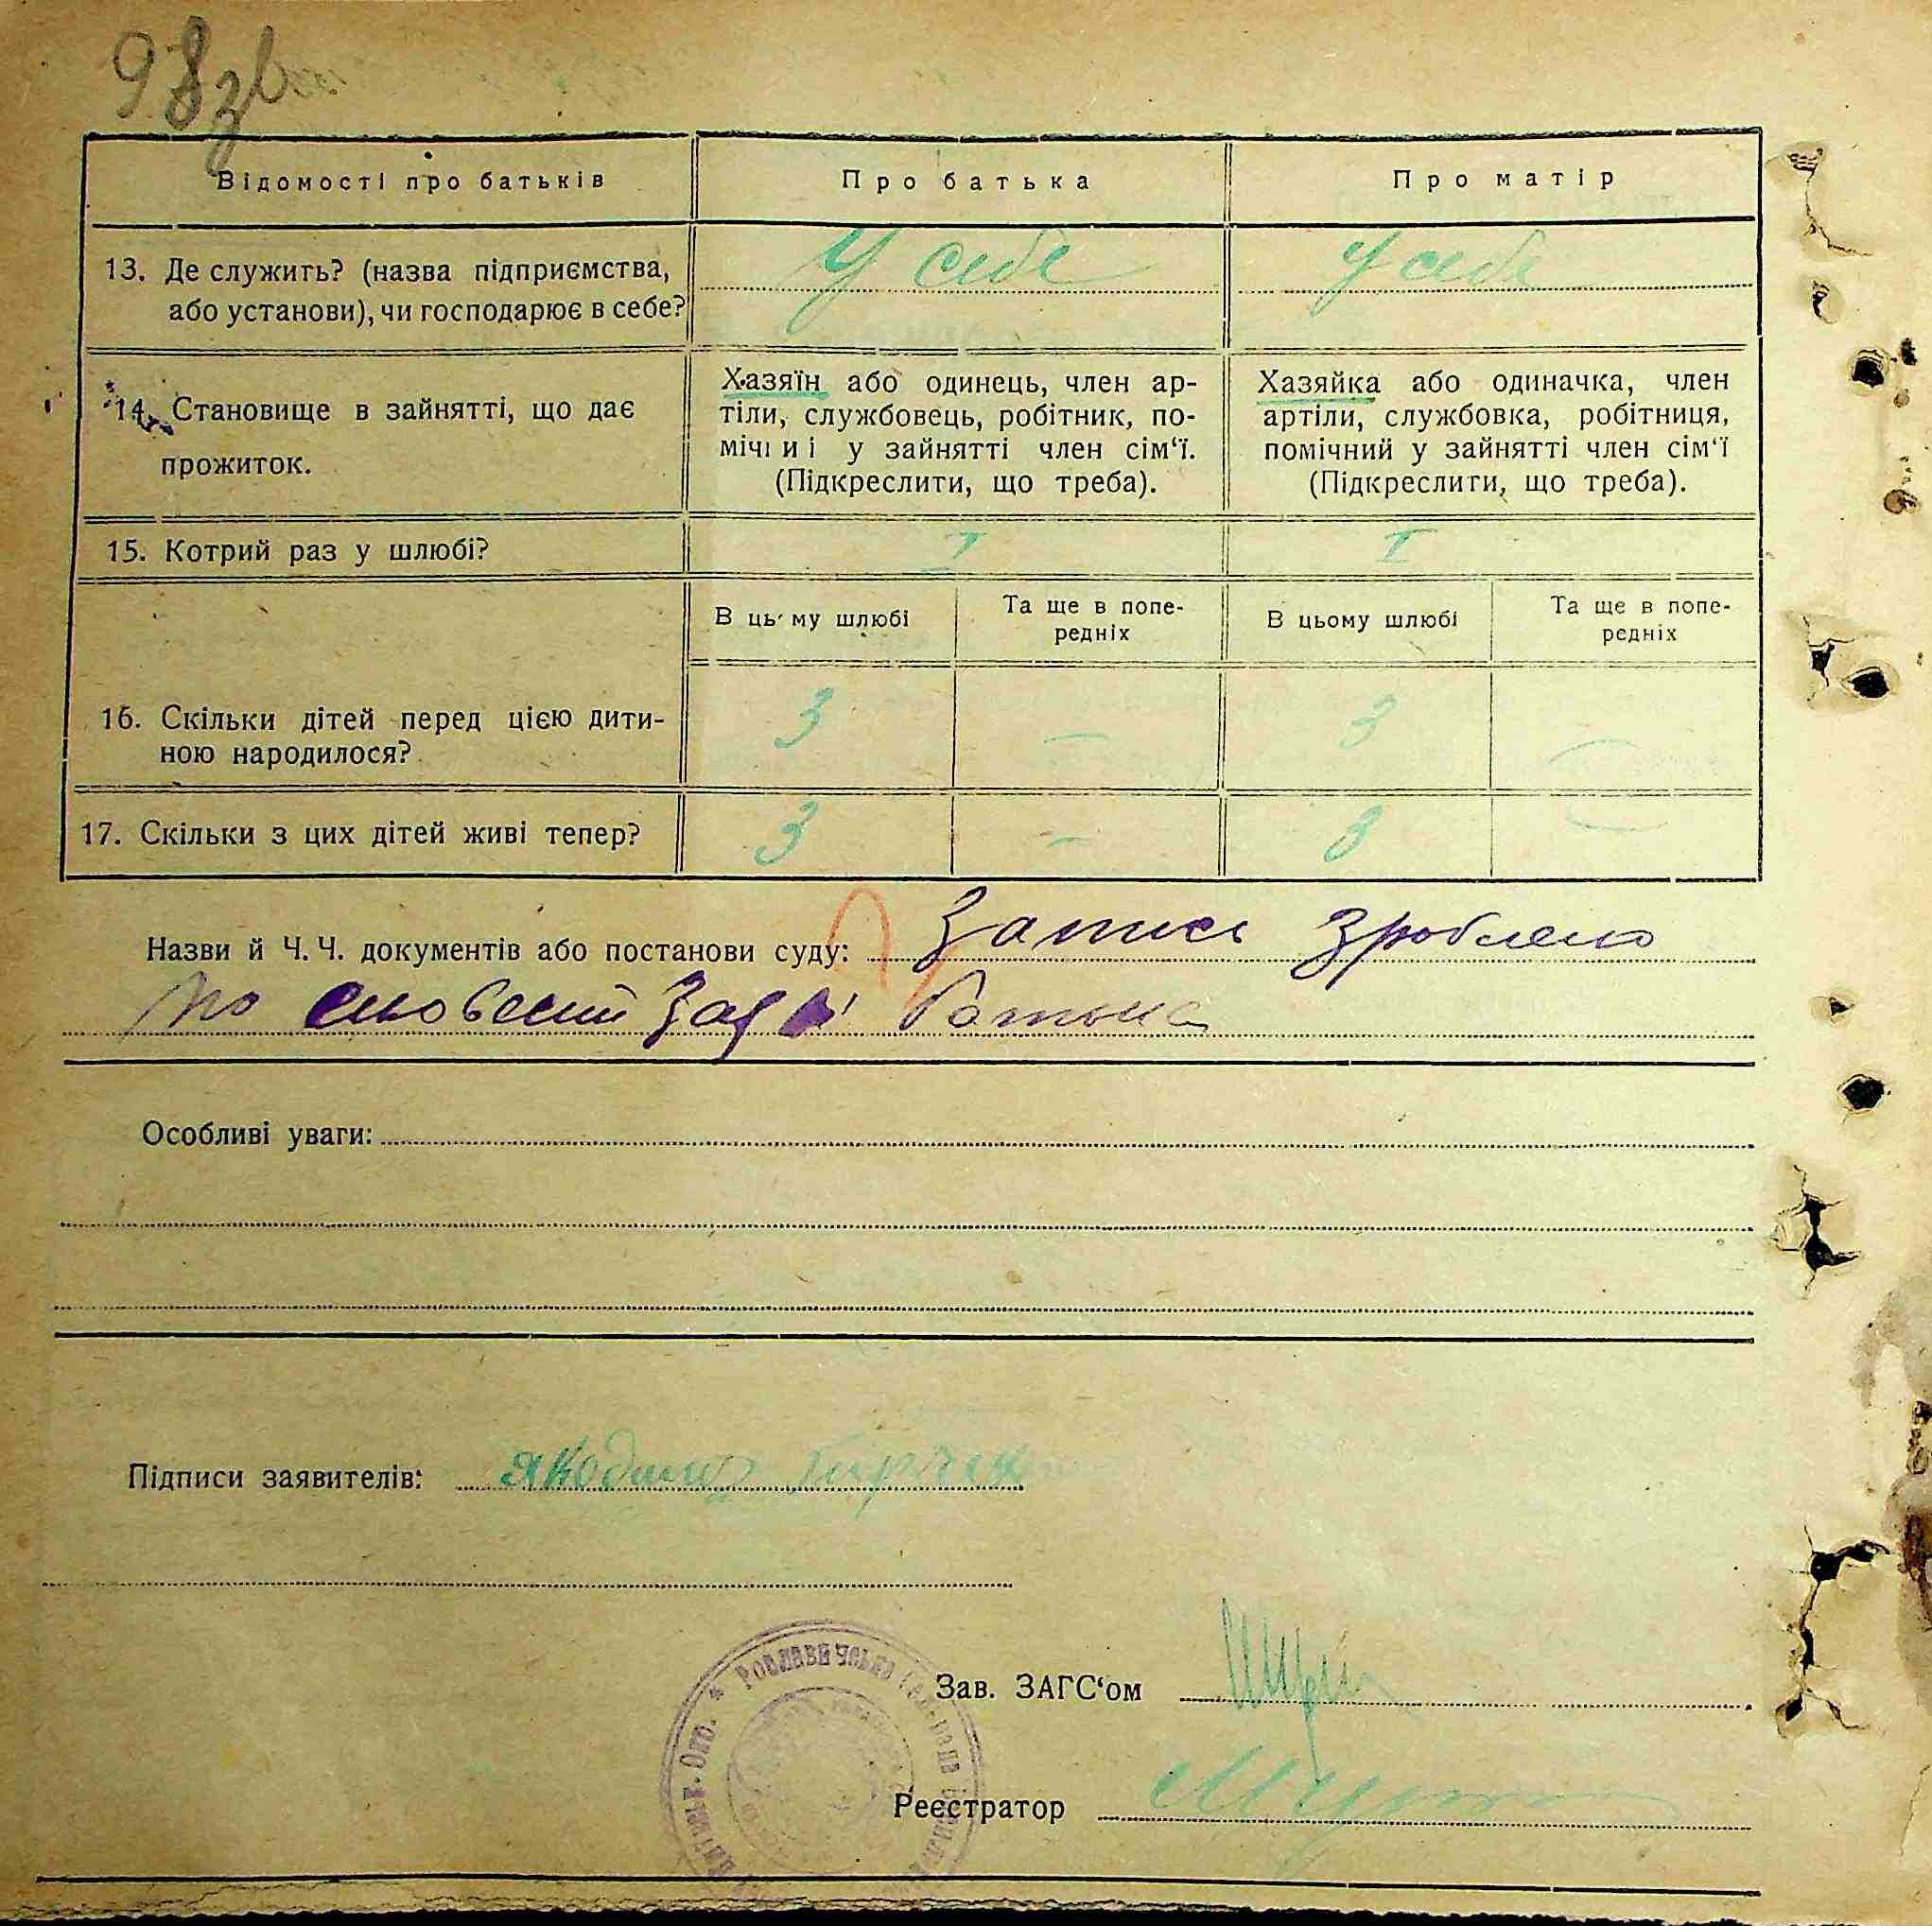 98 зв
Відомості про батьків
Про батька
Про матір
13. Де служить? (назва підприємства,
або установи), чи господарює в себе?
У себе
У себе
14. Становище в зайнятті, що дає
прожиток.
Хазяїн або одинець, член ар-
тіли, службовець, робітник, по-
мічний у зайнятті член сім‘ї.
(Підкреслити, що треба).
Хазяйка або одиначка, член
артіли, службовка, робітниця,
помічний у зайнятті член сім‘ї
(Підкреслити, що треба).
15. Котрий раз у шлюбі?
I
I
В цьому шлюбі
Та ще в попе-
редніх
В цьому шлюбі
Та ще в попе-
редніх
16. Скільки дітей перед цією дити-
ною народилося?
3
—
3
—
17. Скільки з цих дітей живі тепер?
3
—
3
—
Назви й Ч. Ч. документів або постанови суду: Запись зроблено
по словесній заяві батька
Особливі уваги:
Підписи заявителів:
Зав. ЗАГС‘ом
Реєстратор